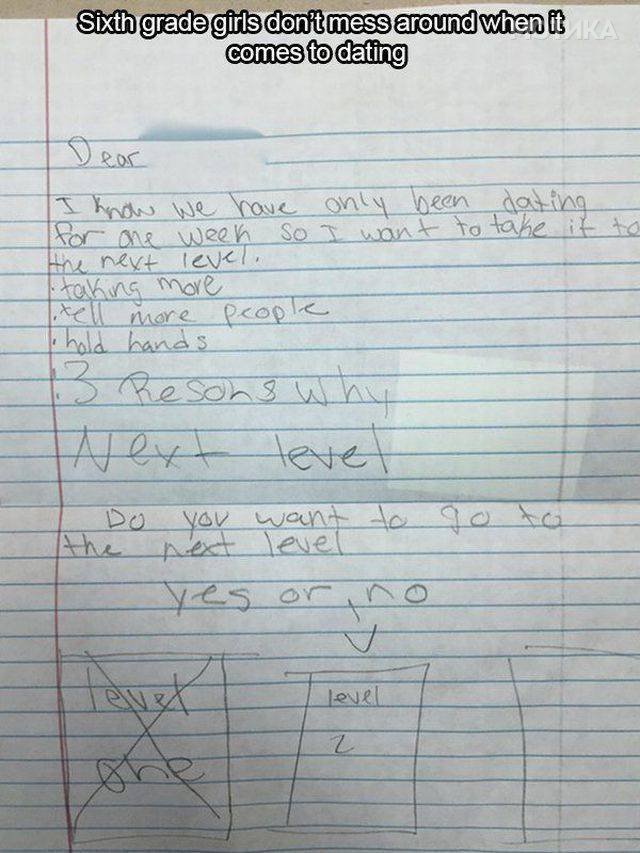 Sixth grade girls don't mess around when it
comes to dating
Dear
I know we have only been dating
for one week so I want to take it to
the next level.
• talking more
• tell more people
• hold hands
3 Resons why
Next level
Do you want to go to
the next level
yes or, no
level
one
level
2